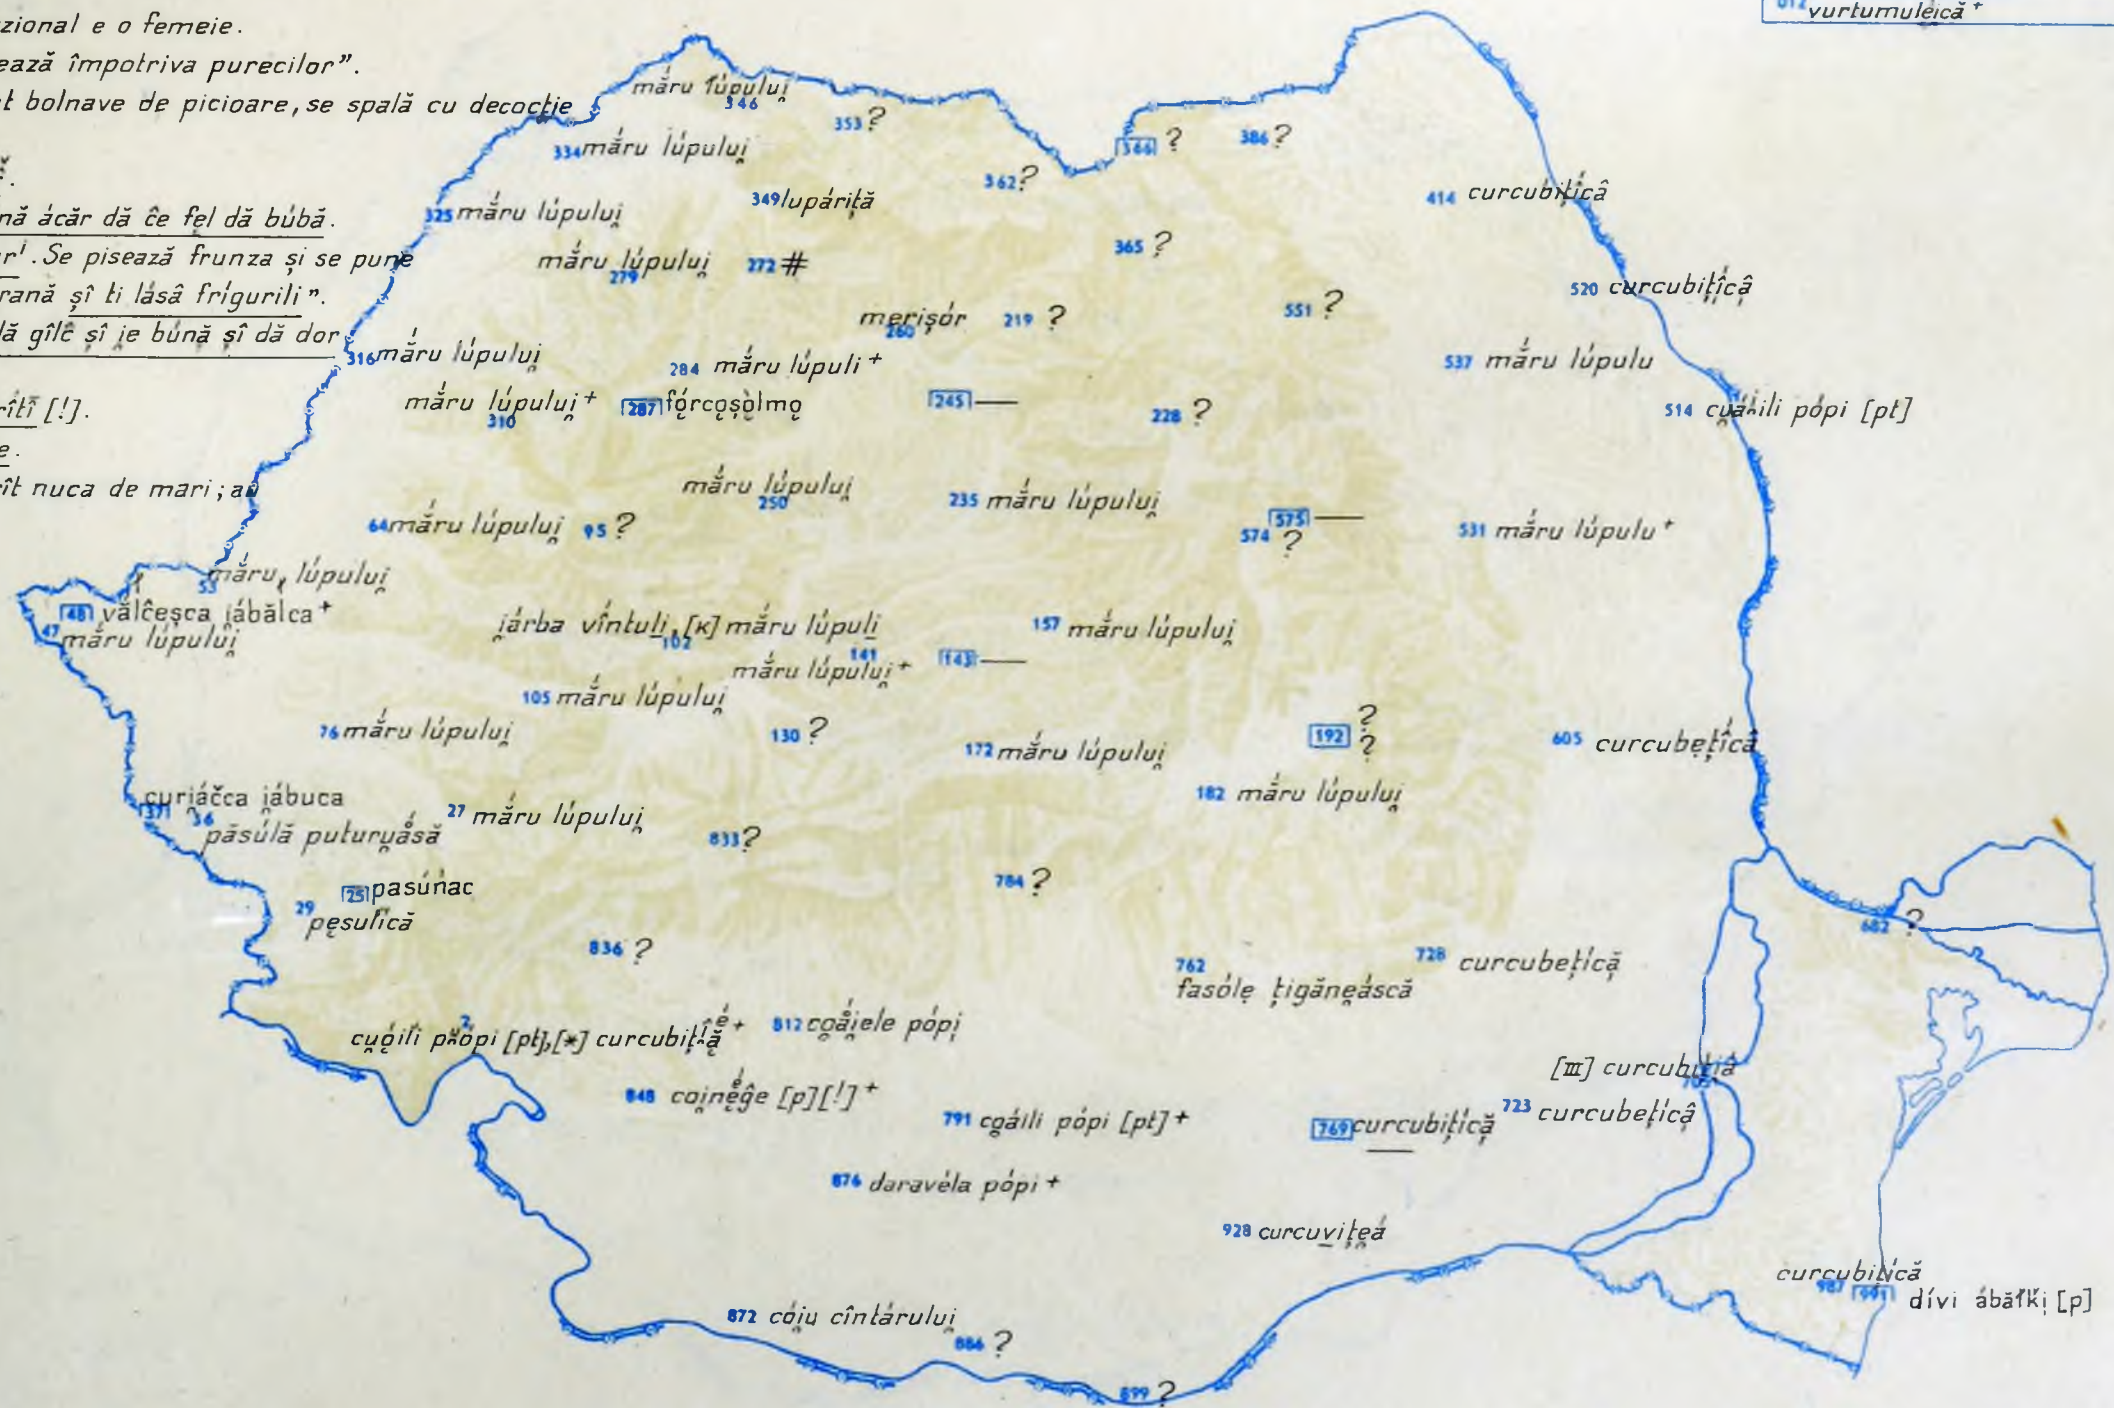 zional e o femeie.
ează împotriva purecilor”.
t bolnave de picioare, se spală cu decocție
nă ácăr dă ĉe fel dă búbă.
r'. Se pisează frunza și se pune
rană șî ti lásâ frígurili”.
lă gîlĉ șî i̯e búnă șî dă dor
rîti [!].
e.
ît nuca de mari; au
012 vurtumuleică +
mắru lúpului̯
346
353 ?
334 mắru lúpului̯
366 ?
386 ?
362 ?
349 lupáriță
414 curcubițícâ
325 mắru lúpului̯
365 ?
mắru lúpului̯
279
272 #
520 curcubițícâ
merișór
260
219 ?
551 ?
316 mắru lúpului̯
284 mắru lúpuli +
537 mắru lúpulu
mắru lúpului̯ +
310
287 fórcoșolmo
245 —
228 ?
514 cu̯áńili pópi [pt]
mắru lúpului̯
250
235 mắru lúpului̯
64 mắru lúpului̯
95 ?
575 —
574 ?
531 mắru lúpulu +
mắru lúpului̯
53
48 vălĉeșca i̯ábălca +
47 mắru lúpului̯
i̯árba vîntuli, [κ] mắru lúpuli
102
157 mắru lúpului̯
141
mắru lúpului̯ +
143 —
105 mắru lúpului̯
76 mắru lúpului̯
130 ?
172 mắru lúpului̯
192 ?
?
605 curcubețícâ
182 mắru lúpului̯
curi̯áčca i̯ábuca
37
36
păsúlă puturu̯ásă
27 mắru lúpului̯
833 ?
784 ?
25 pasúńac
29
pesulícă
682 ?
836 ?
762
fasóle țigăneáscă
728 curcubețícă
2
cu̯óili pu̯ópi [pt], [*] curcubițî́é +
812 coái̯ele pópi̯
[III] curcubițiá
705
848 coi̯néĝe [p] [!] +
791 coáili pópi [pt] +
769 curcubițícă
—
723 curcubețícâ
876 daravéla pópi +
928 curcuvițeá
curcubițícă
987
991 dívi ábăłki̯ [p]
872 cói̯u cîntárului̯
886 ?
899 ?